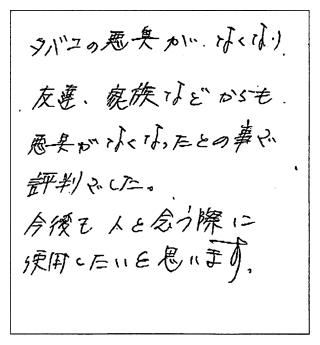 タバコの悪臭が、なくなり
友達、家族などからも
悪臭がなくなったとの事で
評判でした。
今後も人と会う際に
使用したいと思います。